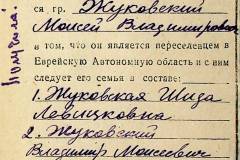 ся гр. Жуковский
Моисей Владимирович
в том, что он является переселенцем в
Еврейскую Автономную область и с ним
следует его семья в составе:
1. Жуковская Шиза
Левицковна
2. Жуковский
Владимир Моисеевич